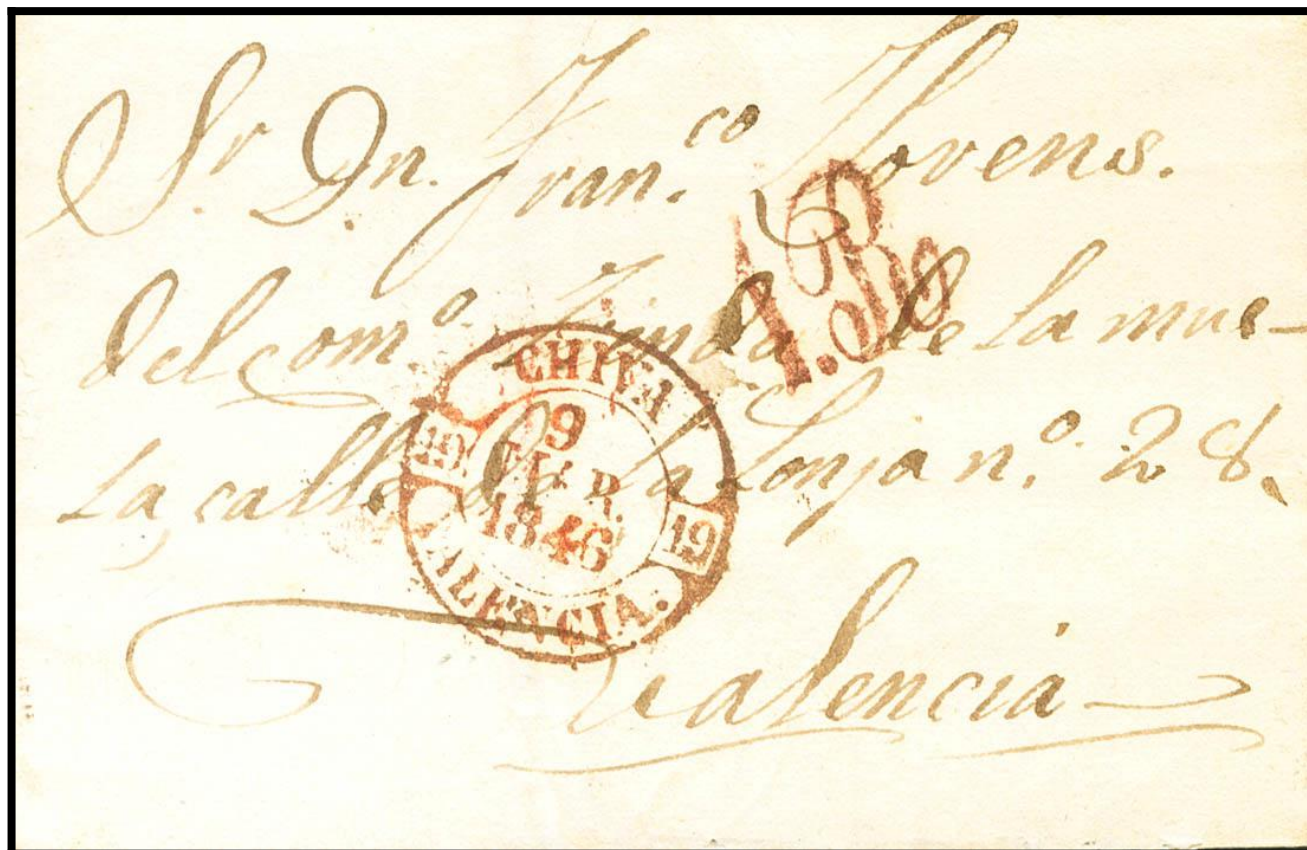 Sr. Dn. Fran.co Llorens.
del com.o Tienda de la mue-
la calle de la Lonja n.o 28.
Valencia
CHIVA
19
9
1846
19
VALENCIA.